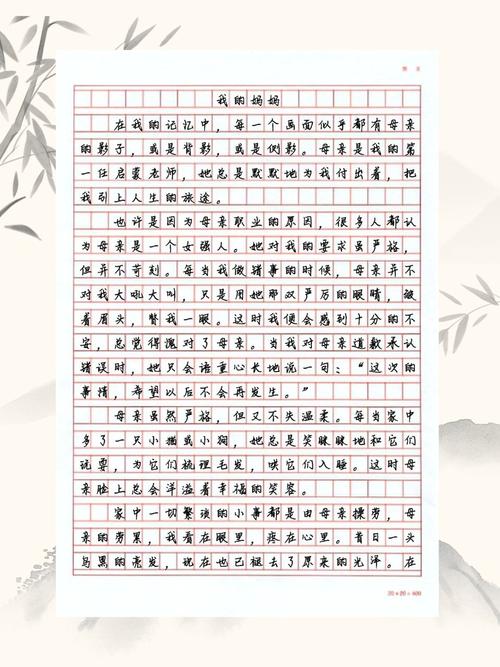 我的妈妈
在我的记忆中，每一个画面似乎都有母亲
的影子，或是背影，或是侧影。母亲是我的第
一任启蒙老师，她总是默默地为我付出着，把
我引上人生的旅途。
也许是因为母亲职业的原因，很多人都认
为母亲是一个女强人。她对我的要求虽严格，
但并不苛刻。每当我做错事的时候，母亲并不
对我大吼大叫，只是用她那双严厉的眼睛，皱
着眉头，瞥我一眼。这时我便会感到十分的不
安，总觉得愧对了母亲。当我对母亲道歉承认
错误时，她只会语重心长地说一句：“这次的
事情，希望以后不会再发生。”
母亲虽然严格，但又不失温柔。每当家中
多了一只小猫或小狗，她总是笑眯眯地和它们
玩耍，为它们梳理毛发，哄它们入睡。这时母
亲脸上总会洋溢着幸福的笑容。
家中一切繁琐的小事都是由母亲操劳，母
亲的劳累，我看在眼里，疼在心里。昔日一头
乌黑的亮发，现在也已褪去了原来的光泽。在
20×20=400